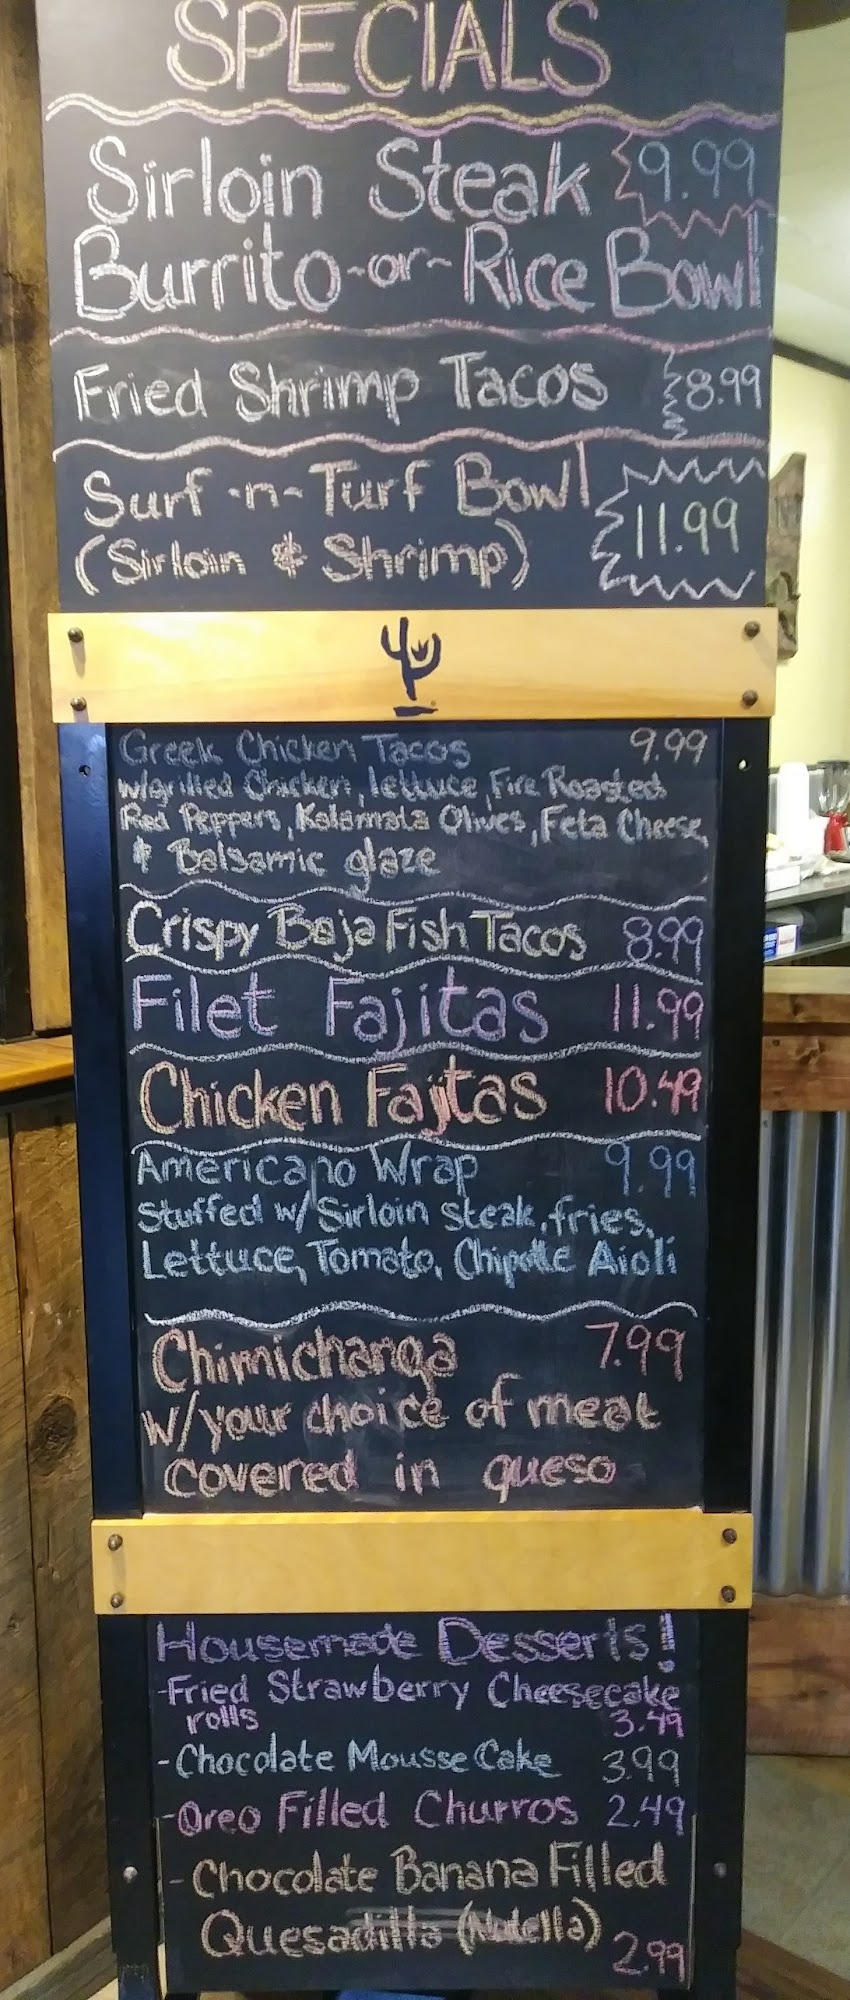 SPECIALS
Sirloin Steak 9.99
Burrito -or- Rice Bowl
Fried Shrimp Tacos 8.99
Surf -n- Turf Bowl
(Sirloin & Shrimp) 11.99
Greek Chicken Tacos 9.99
w/grilled Chicken, lettuce, Fire Roasted
Red Peppers, Kalamata Olives, Feta Cheese,
& Balsamic glaze
Crispy Baja Fish Tacos 8.99
Filet Fajitas 11.99
Chicken Fajitas 10.49
Americano Wrap 9.99
Stuffed w/ Sirloin steak, fries,
Lettuce, Tomato, Chipotle Aioli
Chimichanga 7.99
w/your choice of meat
covered in queso
Housemade Desserts!
-Fried Strawberry Cheesecake
rolls 3.49
-Chocolate Mousse Cake 3.99
-Oreo Filled Churros 2.49
-Chocolate Banana Filled
Quesadilla (Nutella) 2.99